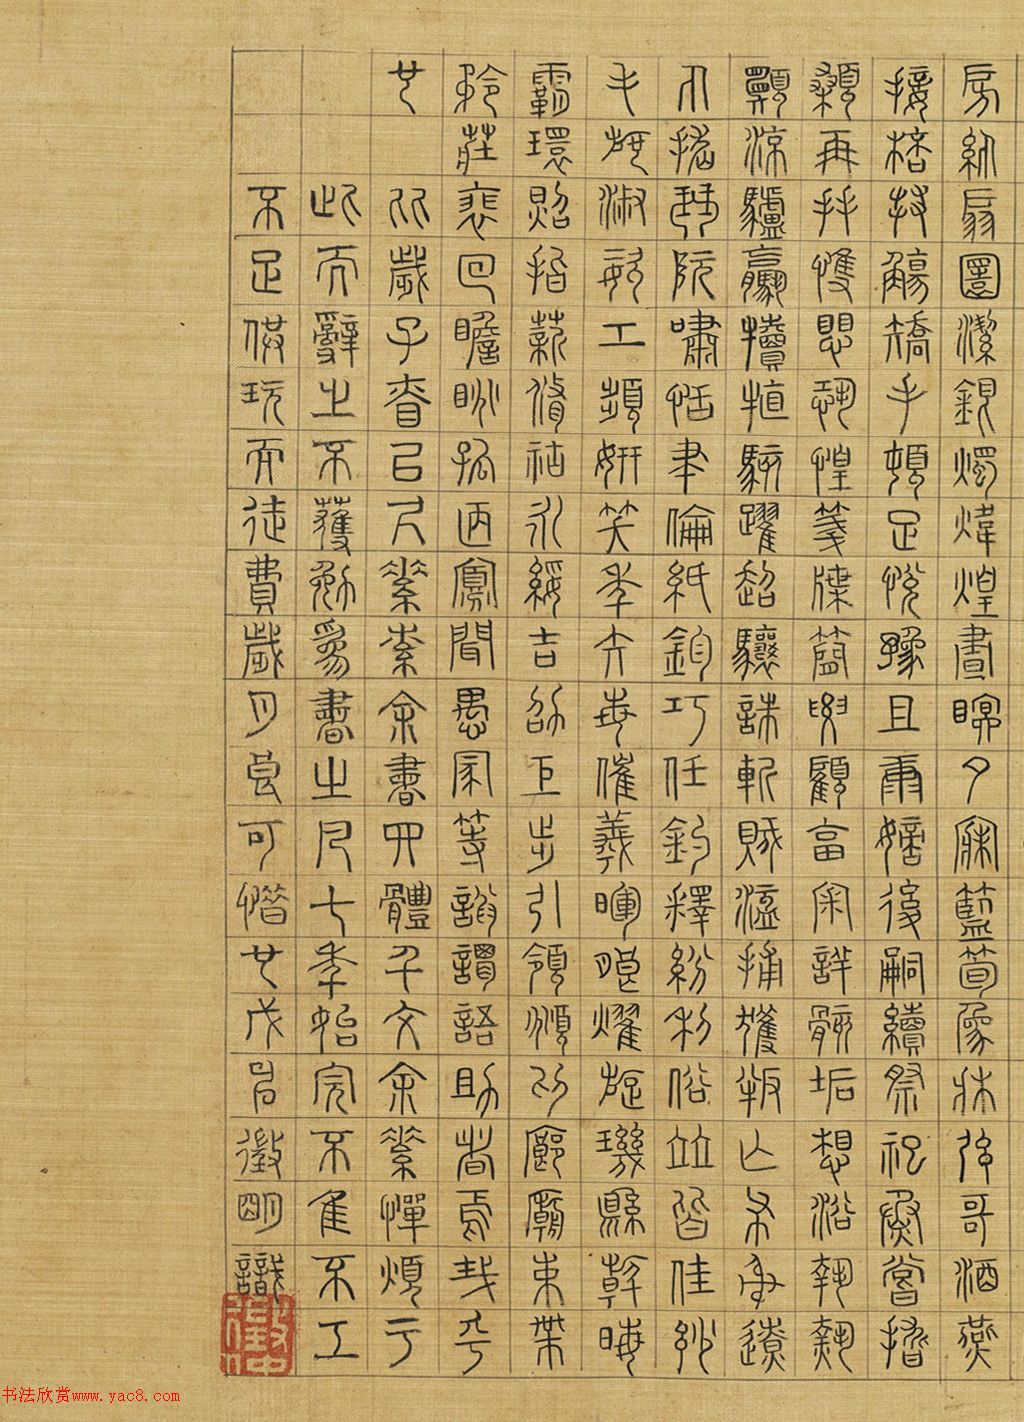 房紈扇圓潔銀燭煒煌晝瞑夕寐籃筍象牀弦歌酒讌
接杯舉觴矯手頓足悅豫且康嫡後嗣續祭祀烝嘗稽
顙再拜悚懼恐惶牋牒簡要顧答審詳骸垢想浴執熱
願涼驢騾犢特駭躍超驤誅斬賊盜捕獲叛亡布射遼
丸嵇琴阮嘯恬筆倫紙鈞巧任釣釋紛利俗並皆佳妙
毛施淑姿工顰妍笑年矢每催羲暉朗曜璇璣懸斡晦
魄環照指薪修祜永綏吉劭矩步引領俯仰廊廟束帶
矜莊徘徊瞻眺孤陋寡聞愚蒙等誚謂語助者焉哉乎
也
比歲子春以尺素索余書四體千文余素憚煩于
此而辭之不獲勉為書之凡七年始完不隹不工
不足供玩而徒費歲月良可惜也戊徵明識
書法欣赏www.yac8.com